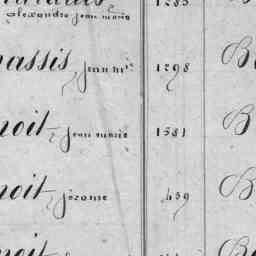 1283
alexandre jean marie
assis jean mie 1298 B
noit jean marie 1581 B
noit jérome 459 B
noit B